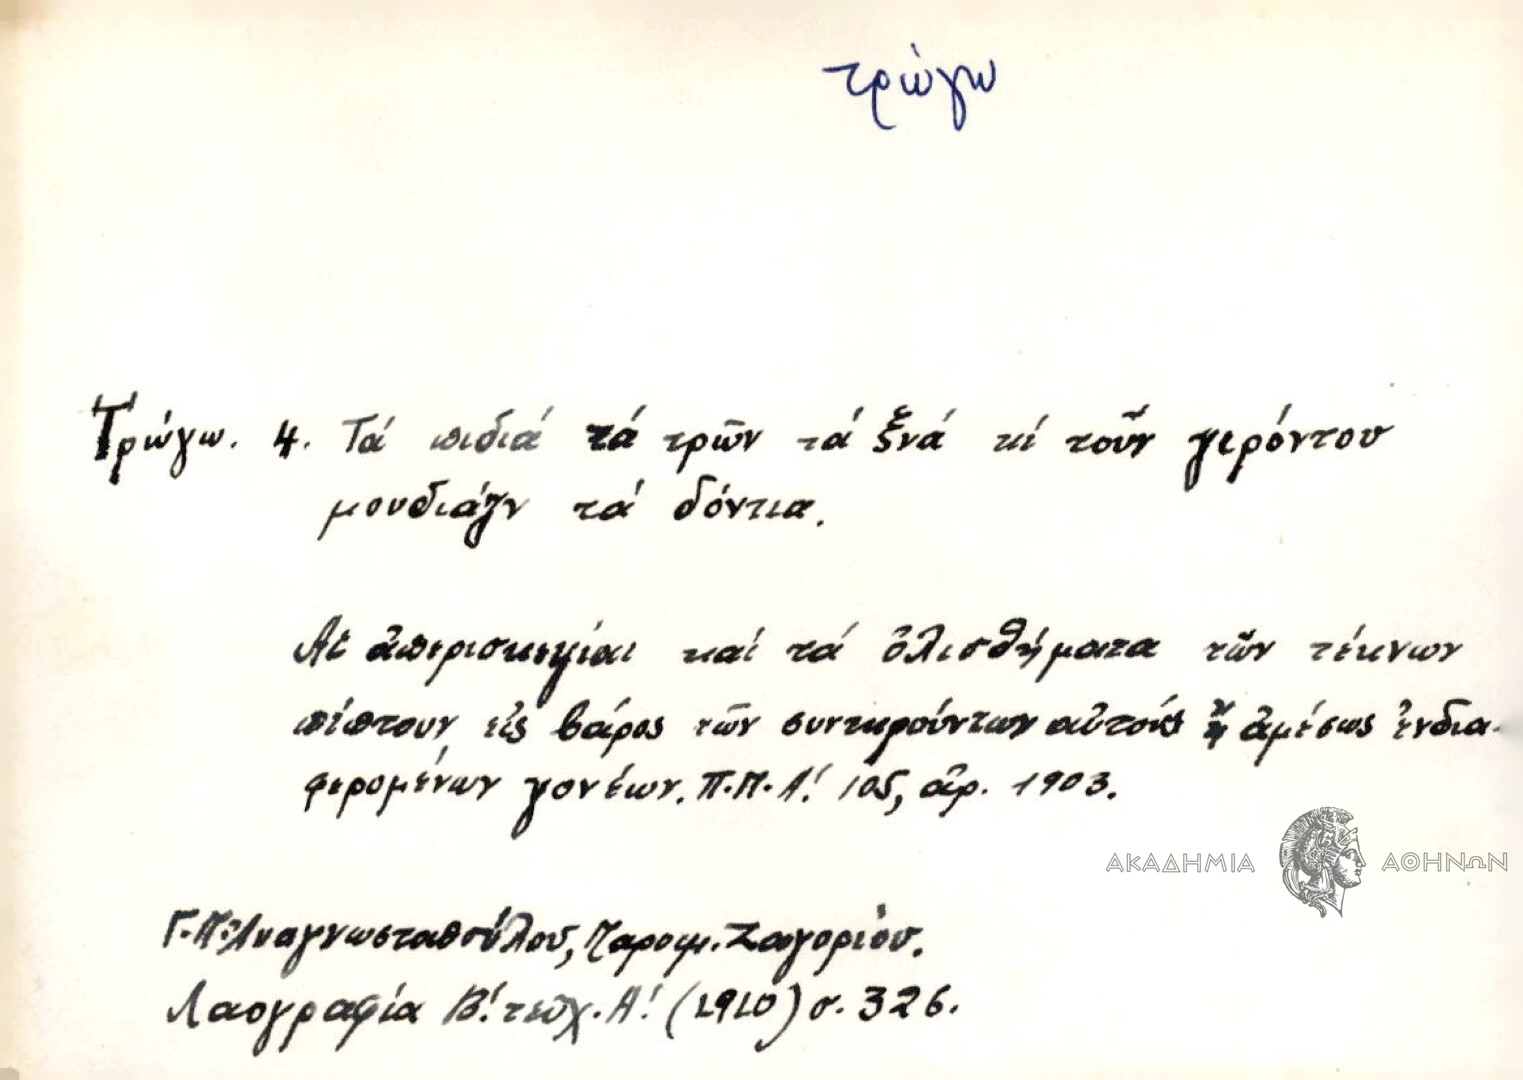 τρώγω
Τρώγω. 4. Τά πιδιά τά τρῶν τά ξνά κί τοῦν γερόντου
μουδιάζν τά δόντια.
Αἱ ἀπερισκεψίαι καί τά ὀλισθήματα τῶν τέκνων
πίπτουν εἰς βάρος τῶν συντηρούντων αὐτούς ἤ ἀμέσως ἐνδια-
φερομένων γονέων. Π.Π.Α! 105, ἀρ. 1903.
ΑΚΑΔΗΜΙΑ ΑΘΗΝΩΝ
Γ.Π. Ἀναγνωστοπούλου, Παροιμ. Ζαγορίου.
Λαογραφία Β! τεῦχ. Α! (1910) σ. 326.